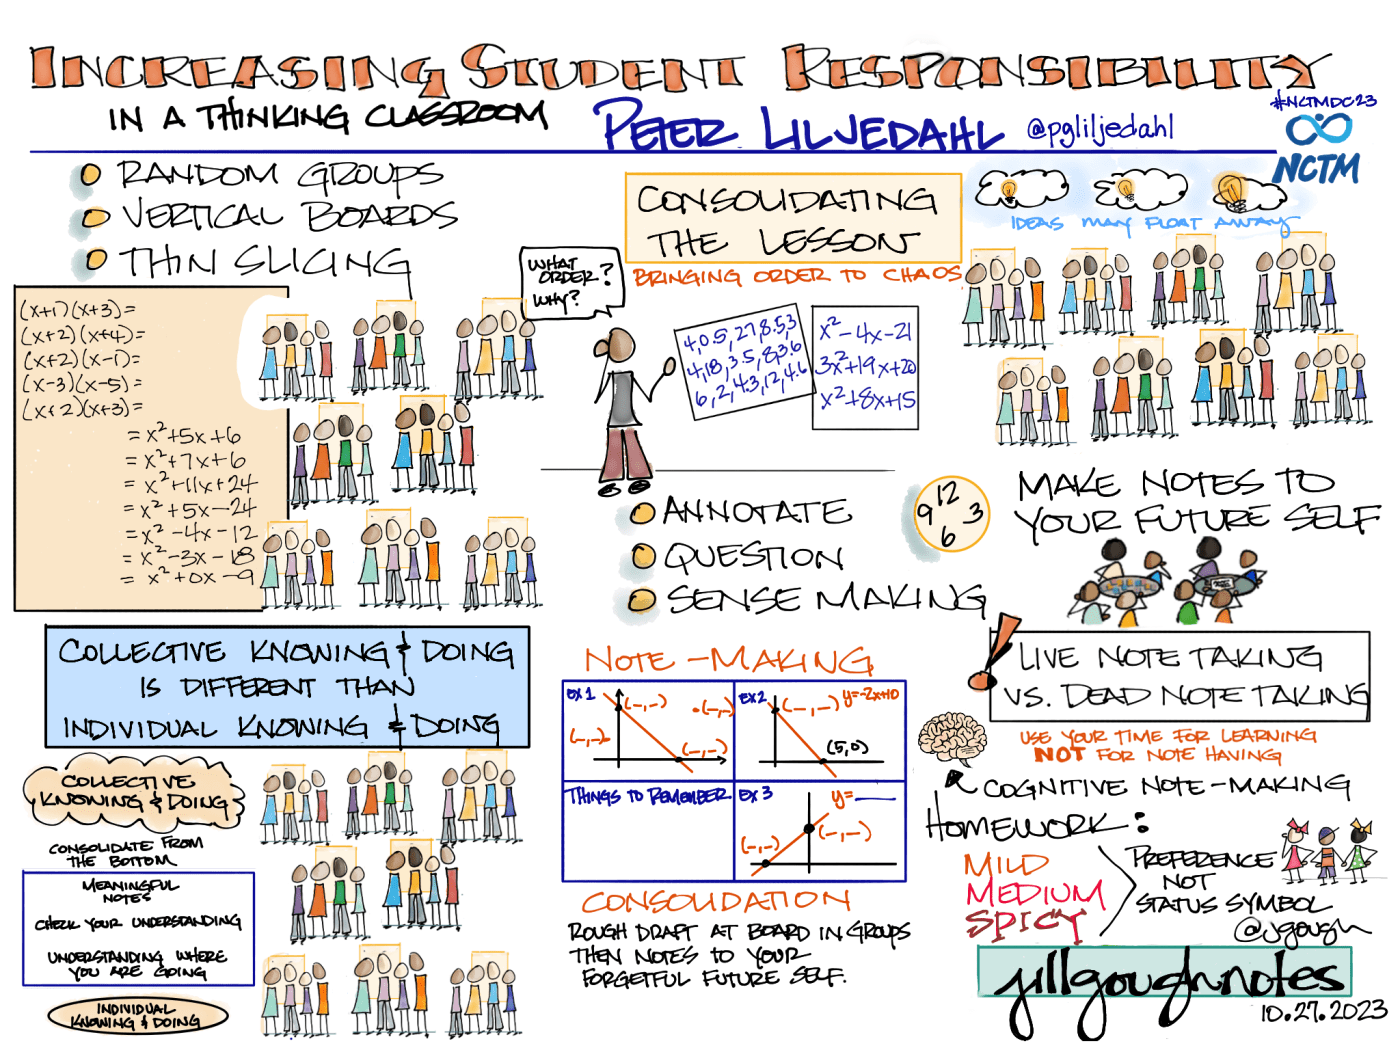 INCREASING STUDENT RESPONSIBILITY
IN A THINKING CLASSROOM
PETER LILJEDAHL @pgliljedahl
#NCTMDC23
NCTM
RANDOM GROUPS
VERTICAL BOARDS
THIN SLICING
(x+1)(x+3)=
(x+2)(x+4)=
(x+2)(x-1)=
(x-3)(x-5)=
(x+2)(x+3)=
= x²+5x+6
= x²+7x+6
= x²+11x+24
= x²+5x-24
= x²-4x-12
= x²-3x-18
= x²+0x-9
COLLECTIVE KNOWING & DOING
IS DIFFERENT THAN
INDIVIDUAL KNOWING & DOING
COLLECTIVE
KNOWING & DOING
CONSOLIDATE FROM
THE BOTTOM
MEANINGFUL
NOTES
CHECK YOUR UNDERSTANDING
UNDERSTANDING WHERE
YOU ARE GOING
INDIVIDUAL
KNOWING & DOING
CONSOLIDATING
THE LESSON
BRINGING ORDER TO CHAOS
WHAT
ORDER?
WHY?
4,0.5,27,8.5,3
4,18,3.5,8,3.6
6,2,4.3,12,4.6
x²-4x-21
3x²+19x+20
x²+8x+15
ANNOTATE
QUESTION
SENSE MAKING
NOTE-MAKING
EX 1
(_,_)
(_,_)
(_,_)
(_,_)
EX 2
(_,_)
y=-2x+10
(5,0)
THINGS TO REMEMBER
EX 3
y=___
(_,_)
(_,_)
CONSOLIDATION
ROUGH DRAFT AT BOARD IN GROUPS
THEN NOTES TO YOUR
FORGETFUL FUTURE SELF.
IDEAS MAY FLOAT AWAY
12
9 3
6
MAKE NOTES TO
YOUR FUTURE SELF
LIVE NOTE TAKING
VS. DEAD NOTE TAKING
USE YOUR TIME FOR LEARNING
NOT FOR NOTE HAVING
COGNITIVE NOTE-MAKING
HOMEWORK:
MILD
MEDIUM
SPICY
PREFERENCE
NOT
STATUS SYMBOL
@jgough
jillgoughnotes
10.27.2023